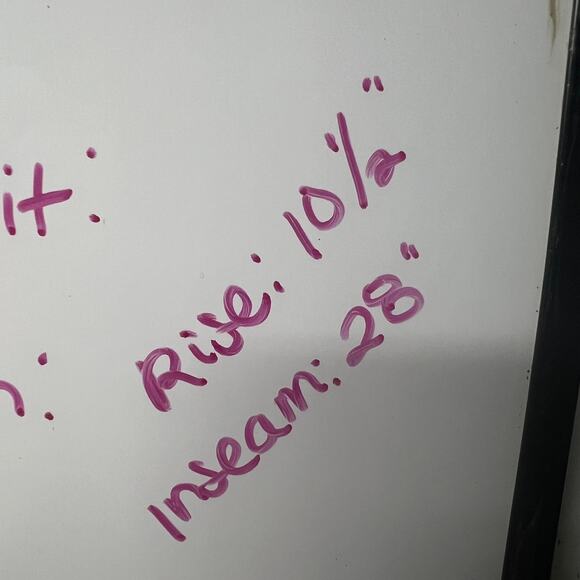 it:
Rise: 10 1/2"
Inseam: 28"